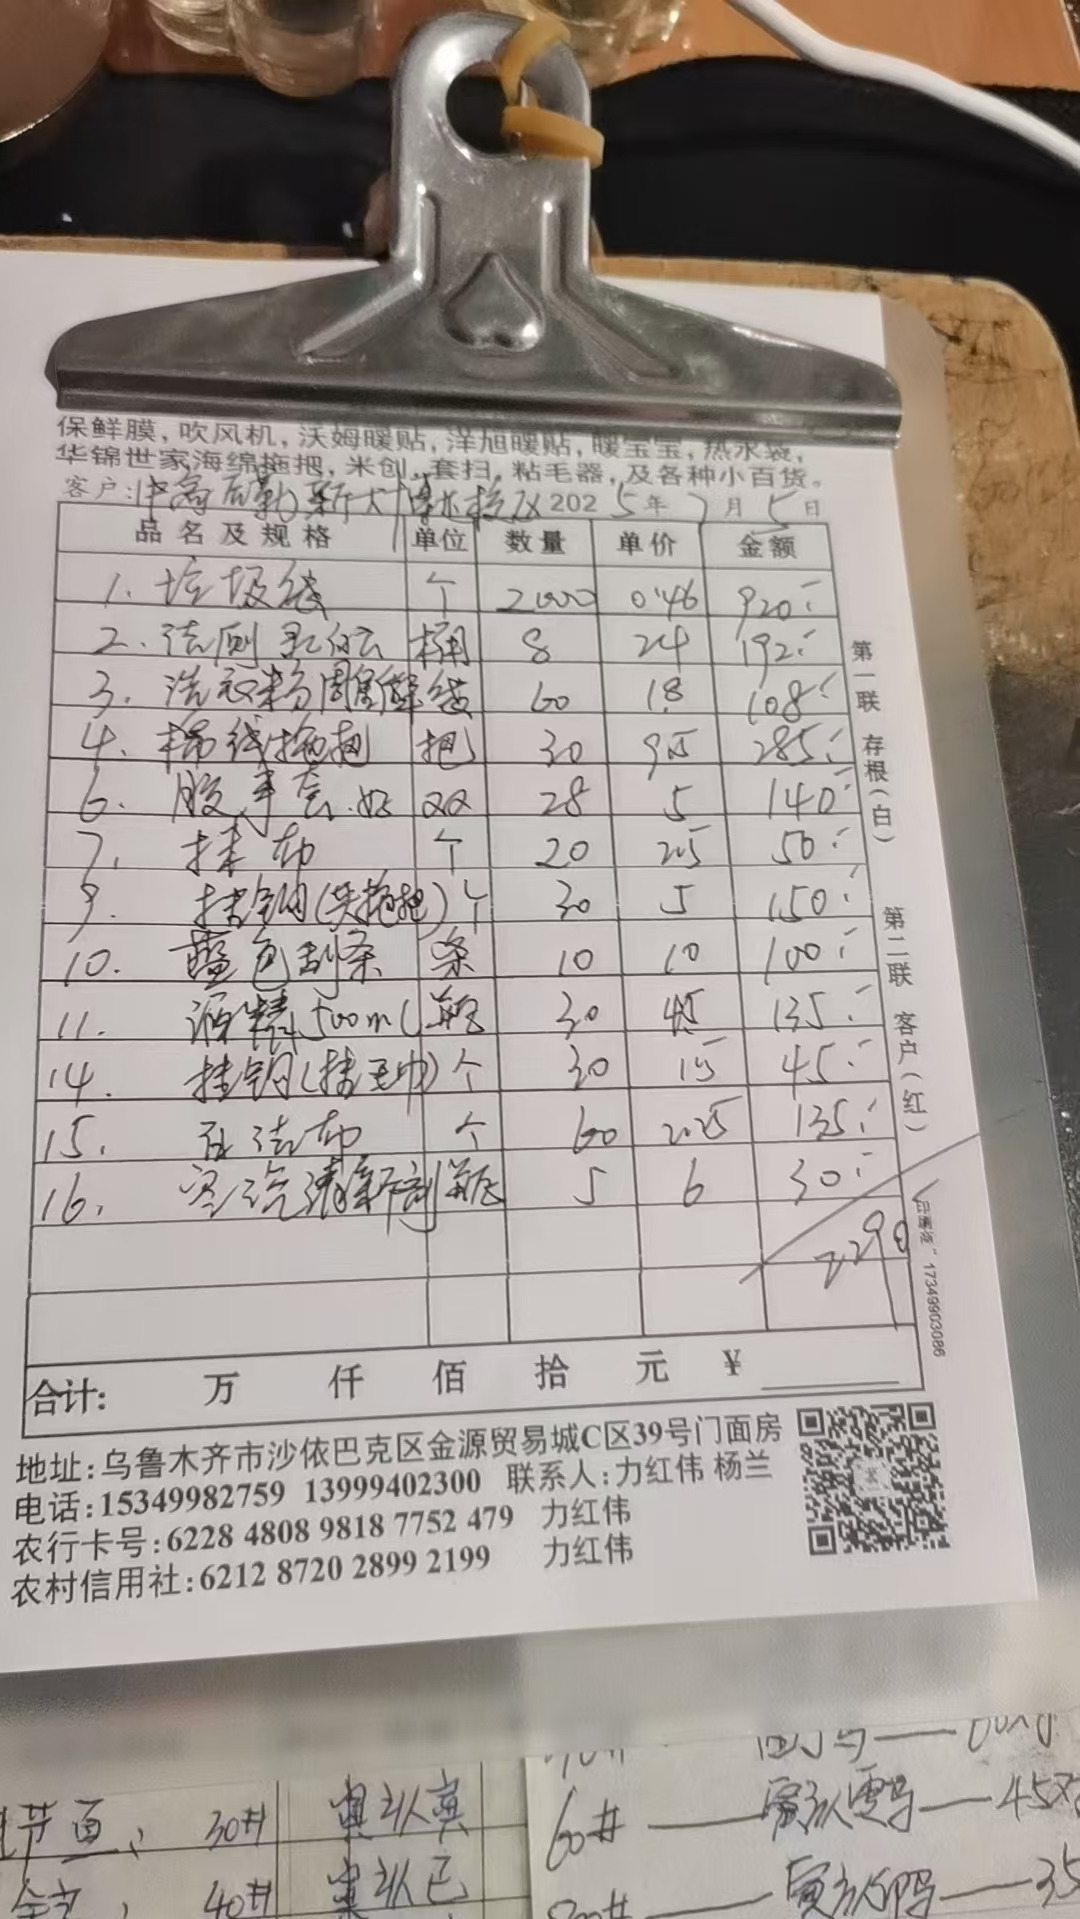 保鲜膜，吹风机，沃姆暖贴，洋旭暖贴，暖宝宝，热水袋，
华锦世家海绵拖把，米创，套扫，粘毛器，及各种小百货。
客户: 2025年7月5日
品名及规格 单位 数量 单价 金额
1. 垃圾袋 个 2000 0.46 920
2. 洁厕 桶 8 24 192
3. 洗衣粉雕牌 袋 60 1.8 108
4. 棉线拖把 把 30 9.5 285
6. 胶手套.好 双 28 5 140
7. 抹布 个 20 2.5 50
9. 挂钩(夹拖把) 个 30 5 150
10. 蓝色刮条 条 10 10 100
11. 酒精500ml 瓶 30 4.5 135
14. 挂钩(挂毛巾) 个 30 1.5 45
15. 百洁布 个 60 2.25 135
16. 空气清新剂 瓶 5 6 30
2290
合计: 万 仟 佰 拾 元 ¥
第一联 存根(白) 第二联 客户(红)
17349903086
地址:乌鲁木齐市沙依巴克区金源贸易城C区39号门面房
电话:15349982759 13999402300 联系人:力红伟 杨兰
农行卡号:6228 4808 9818 7752 479 力红伟
农村信用社:6212 8720 2899 2199 力红伟
30#
60#
40#